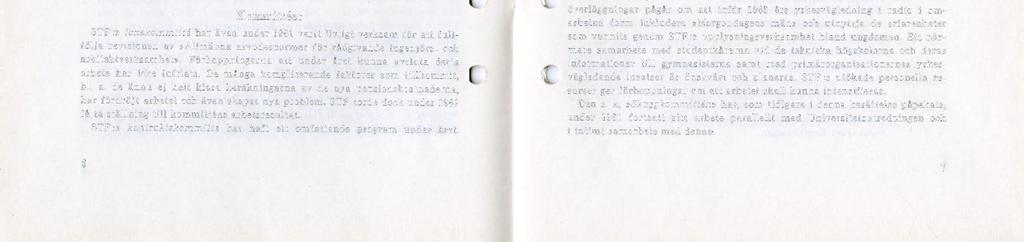 Kommittéer
STF:s taxekommitté har även under 1961 varit livligt verksam för att full-
följa revisionen av allmänna arvodesnormer för rådgivande ingenjörs- och
arkitektverksamhet. Förhoppningarna att under året kunna avsluta detta
arbete har icke infriats. De många komplicerande faktorer som tillkommit,
bl. a. de ännu ej helt klara beräkningarna av de nya pensionskostnaderna,
har fördröjt arbetet och även skapat nya problem. STF torde dock under 1962
få ta ställning till kommitténs arbetsresultat.
STF:s kontraktskommitté har haft ett omfattande program under året.
8
överläggningar pågår om att inför 1962 års yrkesvägledning i radio i om-
arbetad form inkludera morgondagens och utnyttja de erfarenheter
som vunnits genom STF:s upplysningsverksamhet bland ungdomen. Ett när-
mare samarbete med studentkårerna vid de tekniska högskolorna och deras
informationer till gymnasisterna samt med primärorganisationernas yrkes-
vägledande insatser är önskvärt och planeras. STF:s utökade personella re-
surser ger förhoppningar om att arbetet skall kunna intensifieras.
Den s. k. har, som tidigare i denna berättelse påpekats,
under 1961 fortsatt sitt arbete parallellt med Universitetsutredningen och
i intimt samarbete med denna.
9